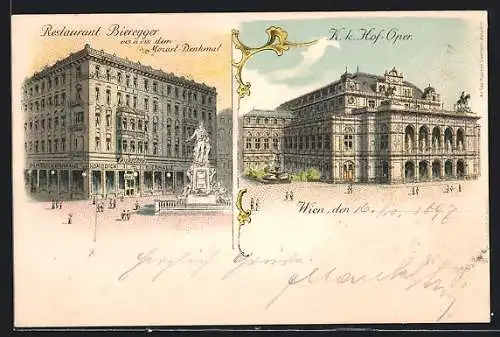 Restaurant Bieregger
vis à vis dem
Mozart-Denkmal
K. k. Hof-Oper.
Wien, den 16/10 1897
Herzlich Grüße